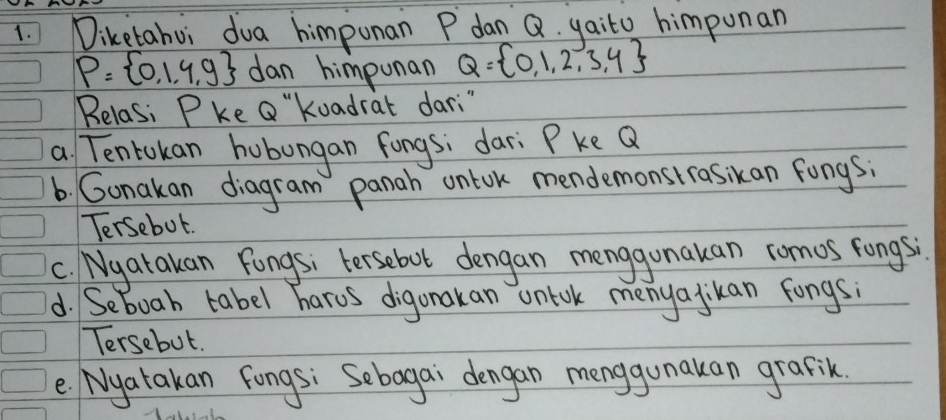 1. Diketahui dua himpunan P dan Q. yaitu himpunan
P = {0,1,4,9} dan himpunan Q = {0,1,2,3,4}
Relasi P ke Q "kuadrat dari"
a. Tentukan hubungan fungsi dari P ke Q
b. Gunakan diagram panah untuk mendemonstrasikan fungsi
Tersebut.
c. Nyatakan fungsi tersebut dengan menggunakan rumus fungsi.
d. Sebuah tabel harus digunakan untuk menyajikan fungsi
Tersebut.
e. Nyatakan fungsi Sebagai dengan menggunakan grafik.